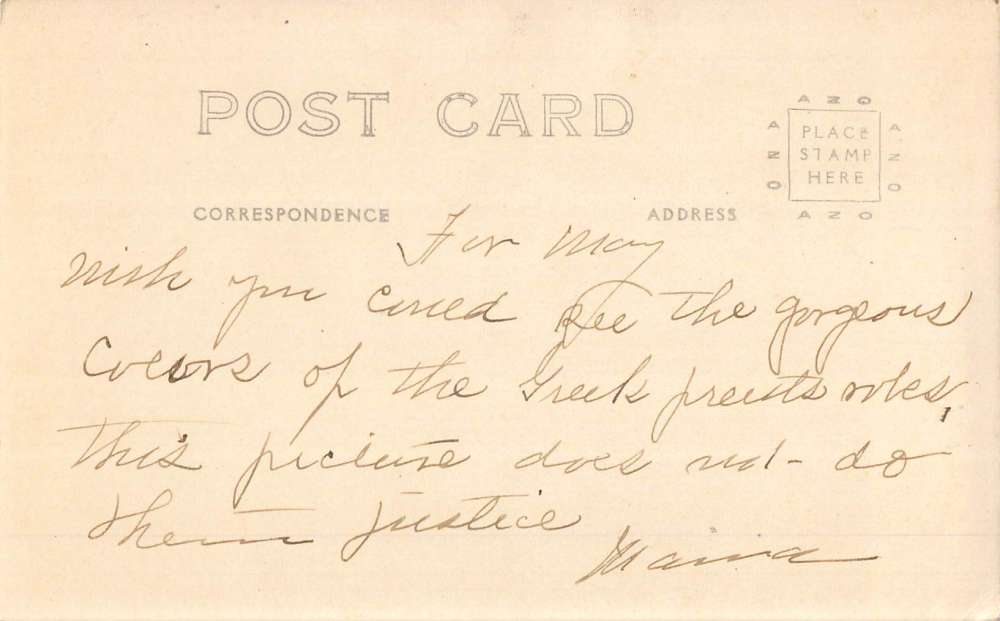 POST CARD
AZO
PLACE
STAMP
HERE
AZO
AZO
AZO
CORRESPONDENCE
ADDRESS
For May
Wish you could see the gorgeous
colors of the Greek preists robes,
this picture does not - do
them justice
Mama